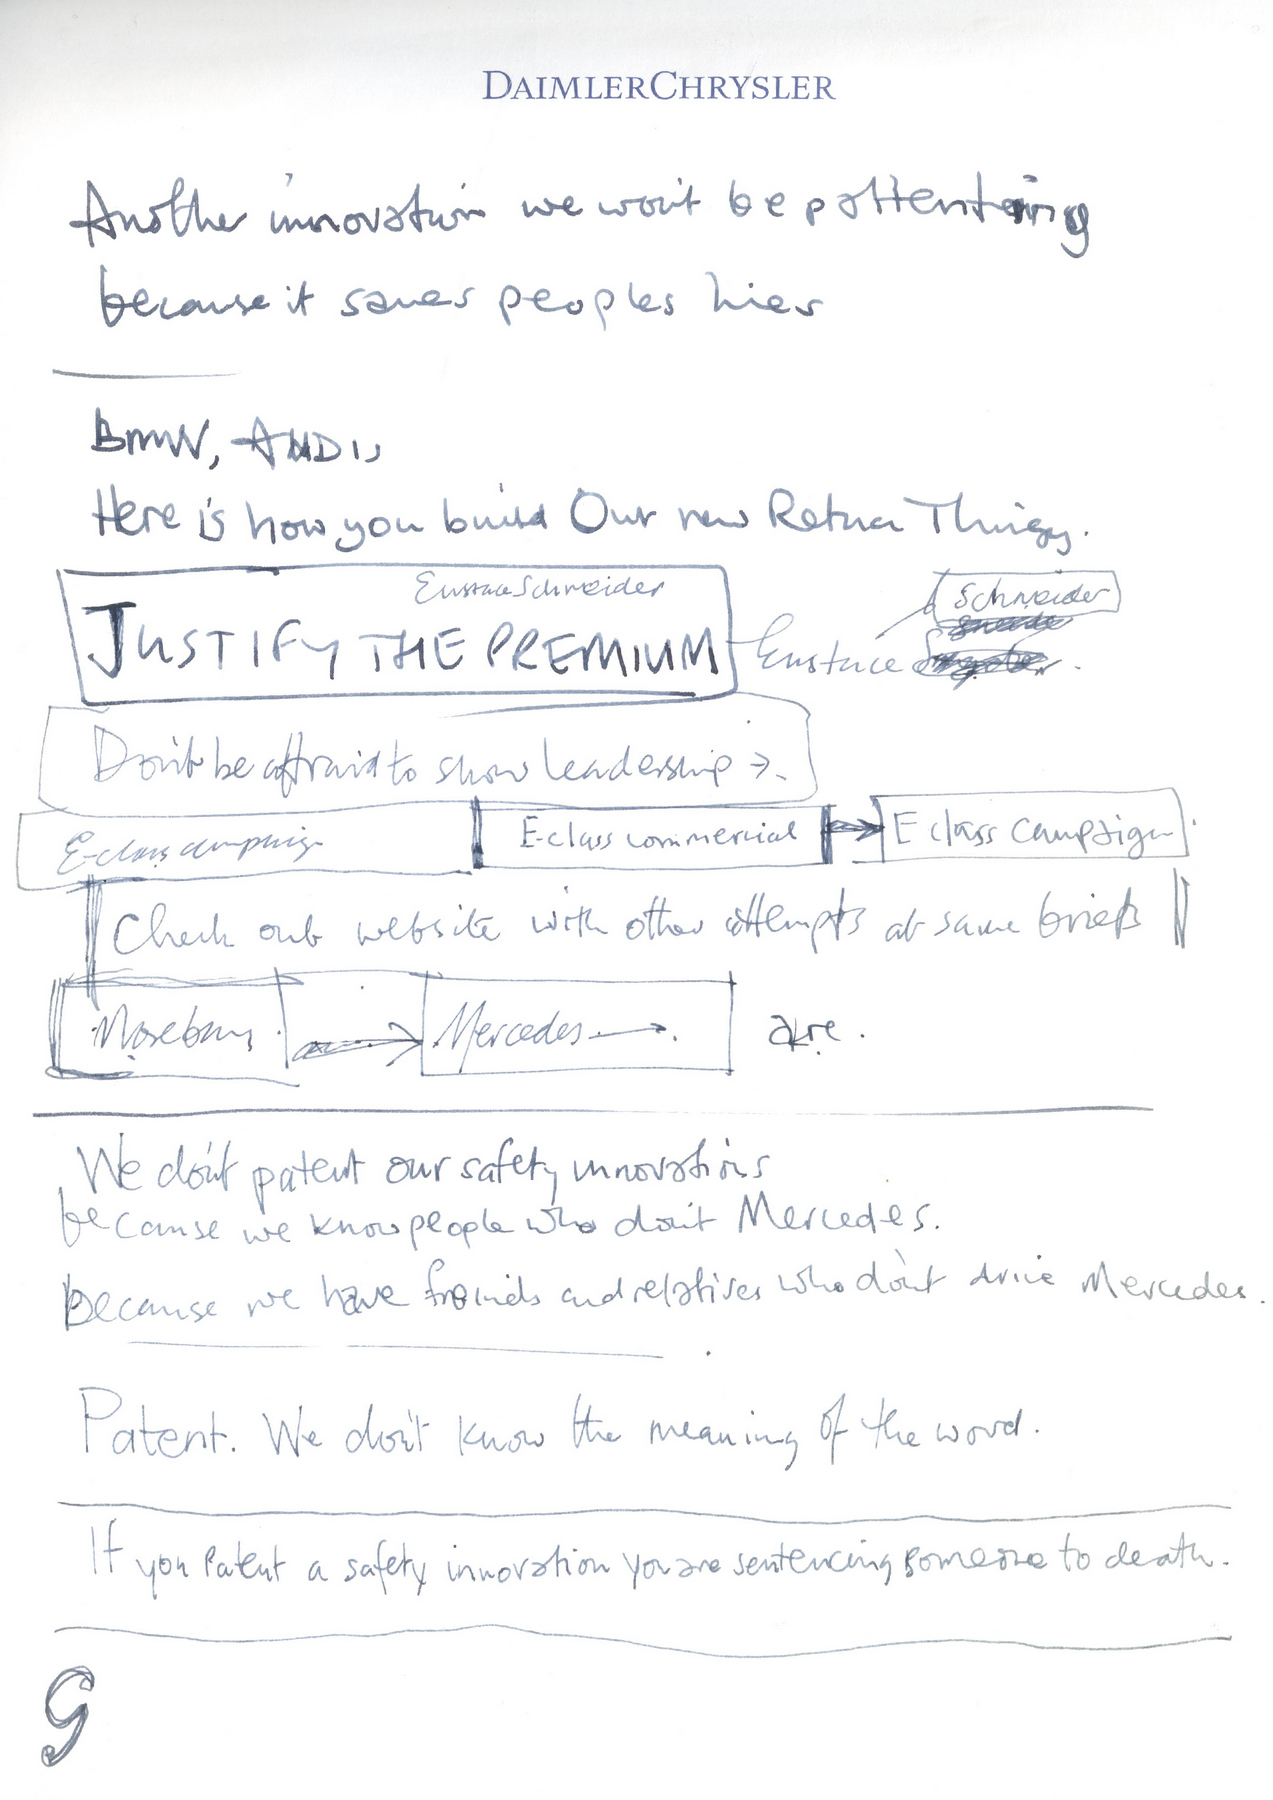 DAIMLERCHRYSLER
Another innovation we won't be pattenting
because it saves peoples lives
BMW, AUDI,
Here is how you build Our new Thingy.
Eustace Schneider
JUSTIFY THE PREMIUM
Eustace
Schneider
Don't be affraid to show leadership
E-class campaign
E-class commercial
E class campaign
Check out website with other attempts at same briefs
Mercedes
We don't patent our safety innovations
because we know people who don't Mercedes.
because we have freinds and relatives who don't drive Mercedes.
Patent. We don't know the meaning of the word.
If you Patent a safety innovation you are sentencing someone to death.
G